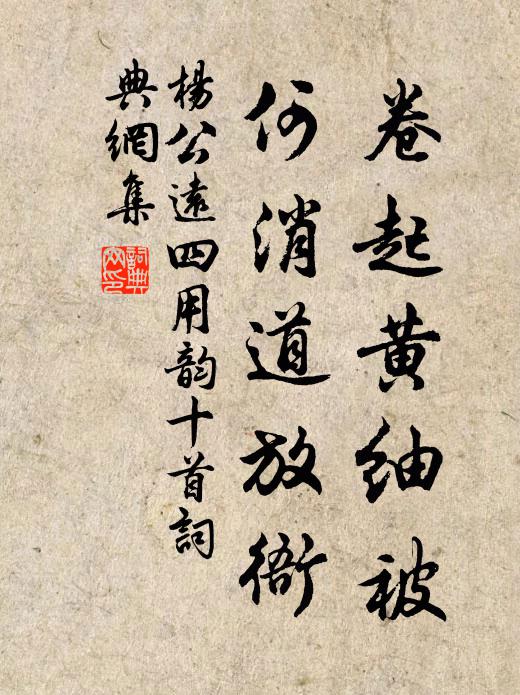 卷起黃紬被
何消道放衙
楊公遠四用韵十首詞
典網集
詞典
文印